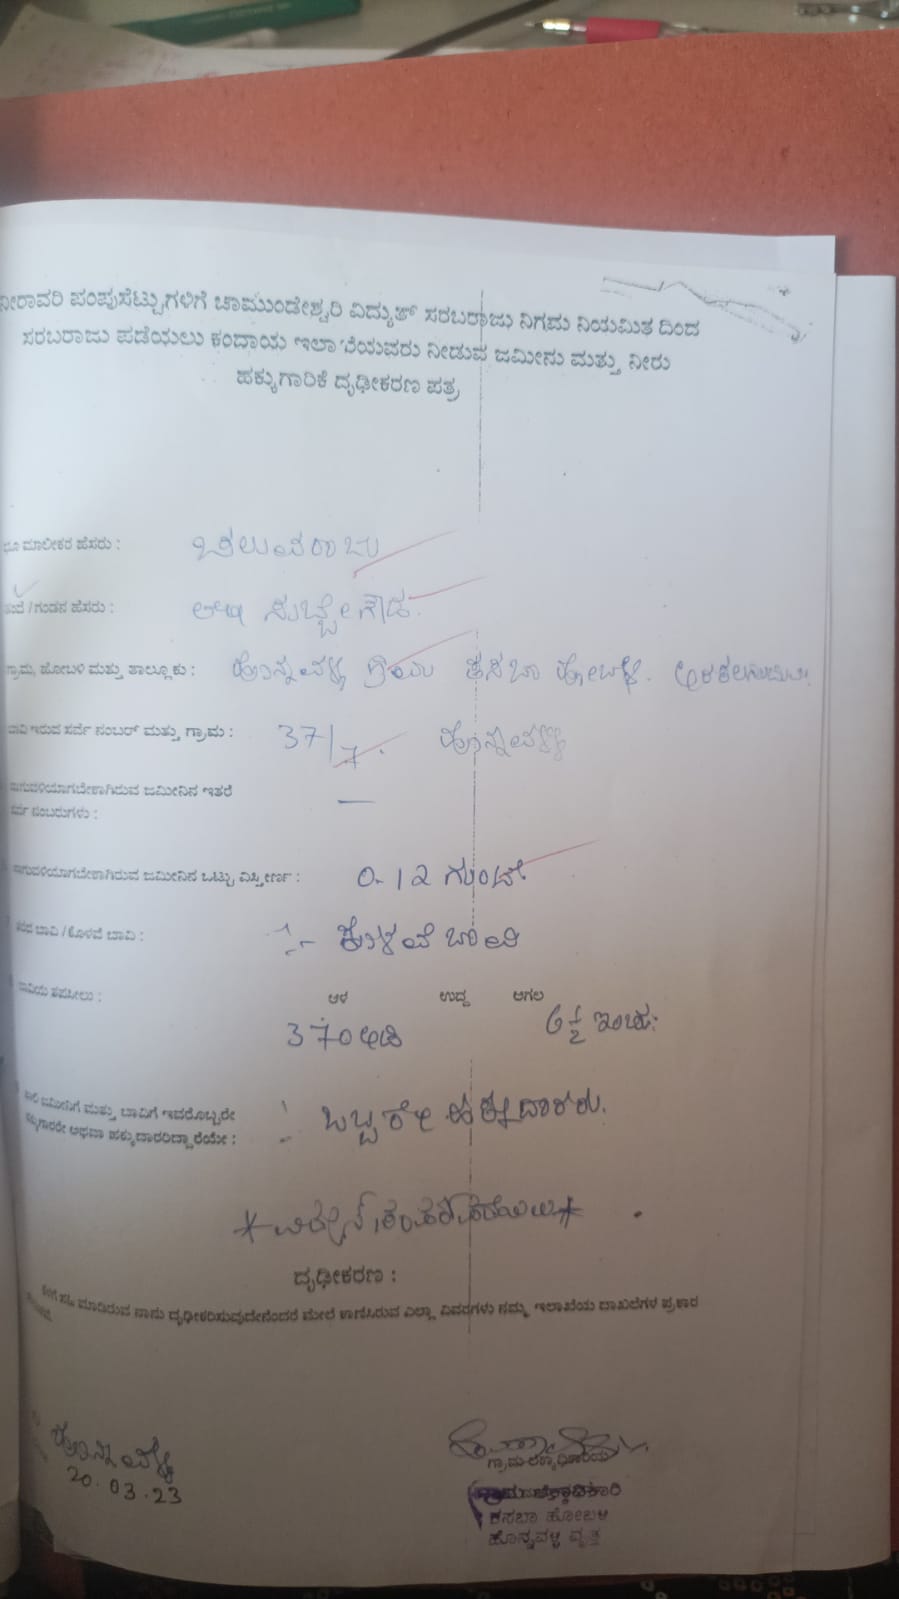 ನೀರಾವರಿ ಪಂಪುಸೆಟ್ಟುಗಳಿಗೆ ಚಾಮುಂಡೇಶ್ವರಿ ವಿದ್ಯುತ್ ಸರಬರಾಜು ನಿಗಮ ನಿಯಮಿತ ದಿಂದ
ಸರಬರಾಜು ಪಡೆಯಲು ಕಂದಾಯ ಇಲಾಖೆಯವರು ನೀಡುವ ಜಮೀನು ಮತ್ತು ನೀರು
ಹಕ್ಕುಗಾರಿಕೆ ದೃಢೀಕರಣ ಪತ್ರ
ಭೂ ಮಾಲೀಕರ ಹೆಸರು : ಚಲುವರಾಜು
ತಂದೆ / ಗಂಡನ ಹೆಸರು : ಸುಬ್ಬೇಗೌಡ.
ಗ್ರಾಮ, ಹೋಬಳಿ ಮತ್ತು ತಾಲ್ಲೂಕು : ಹೊನ್ನವಳ್ಳಿ ಗ್ರಾಮ ಕಸಬಾ ಹೋಬಳಿ.
ಬಾವಿ ಇರುವ ಸರ್ವೆ ನಂಬರ್ ಮತ್ತು ಗ್ರಾಮ : 37/7. ಹೊನ್ನವಳ್ಳಿ
ಸಾಗುವಳಿಯಾಗಬೇಕಾಗಿರುವ ಜಮೀನಿನ ಇತರೆ —
ಸರ್ವೆ ನಂಬರುಗಳು :
ಸಾಗುವಳಿಯಾಗಬೇಕಾಗಿರುವ ಜಮೀನಿನ ಒಟ್ಟು ವಿಸ್ತೀರ್ಣ : 0-12 ಗುಂಟೆ
ತೆರೆದ ಬಾವಿ / ಕೊಳವೆ ಬಾವಿ : :- ಕೊಳವೆ ಬಾವಿ
ಬಾವಿಯ ತಪಶೀಲು : ಆಳ ಉದ್ದ ಅಗಲ
370 ಅಡಿ 6 1/2 ಇಂಚು
ಜಮೀನಿಗೆ ಮತ್ತು ಬಾವಿಗೆ ಇವರೊಬ್ಬರೇ
ಹಕ್ಕುಗಾರರೇ ಅಥವಾ ಹಕ್ಕುದಾರರಿದ್ದಾರೆಯೇ : :- ಒಬ್ಬರೇ ಹಕ್ಕುದಾರರು.
ದೃಢೀಕರಣ :
ಕೆಳಗೆ ಸಹಿ ಮಾಡಿರುವ ನಾನು ದೃಢೀಕರಿಸುವುದೇನೆಂದರೆ ಮೇಲೆ ಕಾಣಿಸಿರುವ ಎಲ್ಲಾ ವಿವರಗಳು ನಮ್ಮ ಇಲಾಖೆಯ ದಾಖಲೆಗಳ ಪ್ರಕಾರ
ಹೊನ್ನವಳ್ಳಿ
20.03.23
ಗ್ರಾಮ ಲೆಕ್ಕಾಧಿಕಾರಿ
ಕಸಬಾ ಹೋಬಳಿ
ಹೊನ್ನವಳ್ಳಿ ವೃತ್ತ